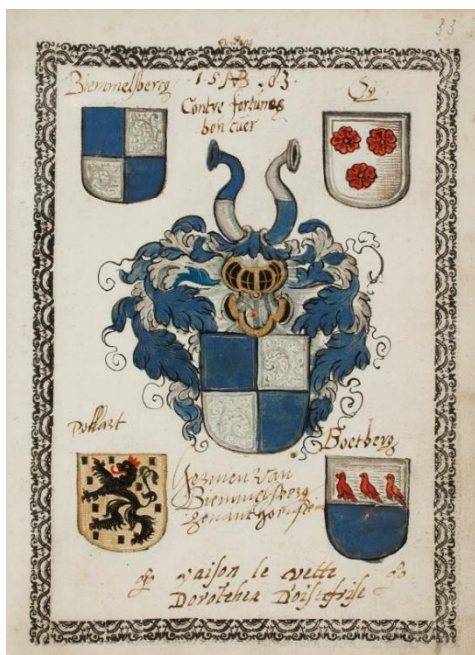 33
Biemmelsberg
1 5 AB . 83 .
Contre fortunes
bon cuer
Pollart
Boetberg
Hoemen Van
Biemmelsborg
genant
raison le vette
Dorothea D'oistfrise